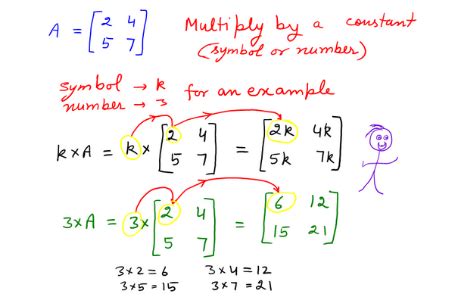 A = [2 4
5 7]
Multiply by a constant
(symbol or number)
symbol → k
number → 3
for an example
k×A = k × [2 4
5 7] = [2k 4k
5k 7k]
3×A = 3× [2 4
5 7] = [6 12
15 21]
3×2=6 3×4=12
3×5=15 3×7=21